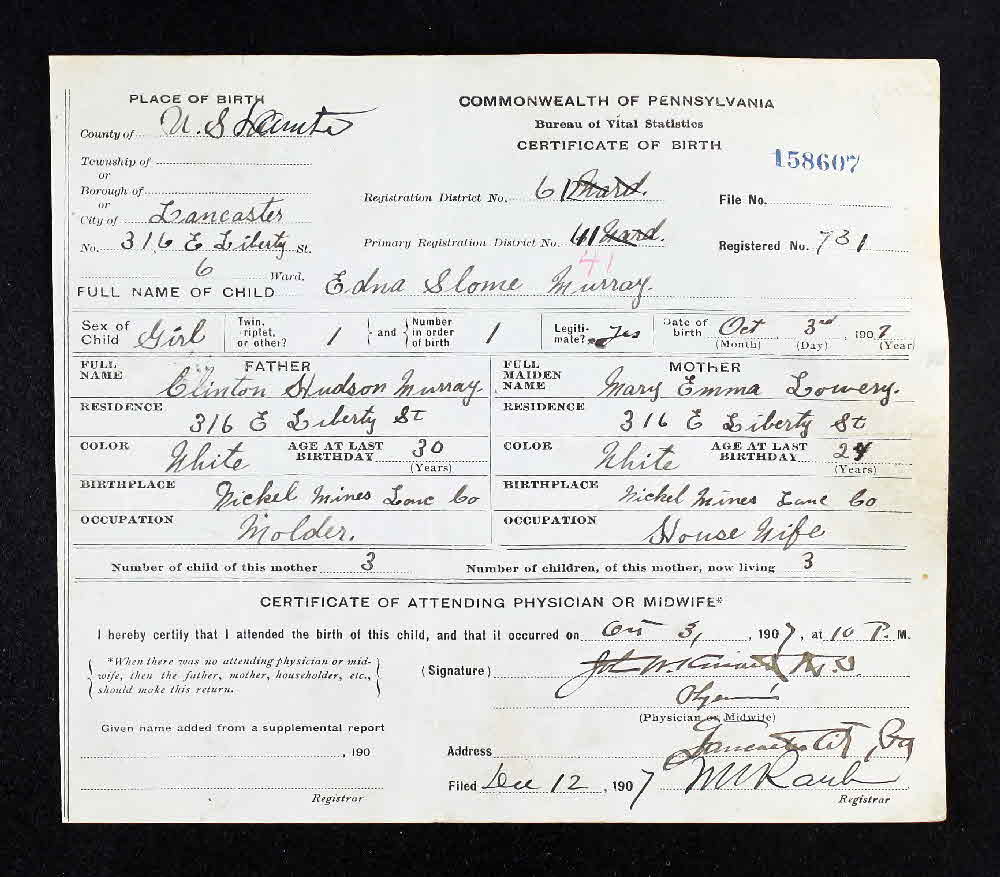 PLACE OF BIRTH
County of U. S.
Township of
or
Borough of
or
City of Lancaster
No. 316 E Liberty St.
6 Ward.
COMMONWEALTH OF PENNSYLVANIA
Bureau of Vital Statistics
CERTIFICATE OF BIRTH
158607
Registration District No. 61 Ward.
File No.
Primary Registration District No. 61 Ward.
41
Registered No. 731
FULL NAME OF CHILD Edna Slome Murray.
Sex of Child Girl
Twin, riplet, or other? 1 and Number in order of birth 1
Legitimate? Yes
Date of birth Oct 3rd, 1907
(Month) (Day) (Year)
FATHER
FULL NAME Clinton Hudson Murray
RESIDENCE 316 E Liberty St
COLOR White AGE AT LAST BIRTHDAY 30
(Years)
BIRTHPLACE Nickel Mines Lanc Co
OCCUPATION Molder.
MOTHER
FULL MAIDEN NAME Mary Emma Lowery.
RESIDENCE 316 E Liberty St
COLOR White AGE AT LAST BIRTHDAY 24
(Years)
BIRTHPLACE Nickel Mines Lanc Co
OCCUPATION House Wife
Number of child of this mother 3 Number of children, of this mother, now living 3
CERTIFICATE OF ATTENDING PHYSICIAN OR MIDWIFE*
I hereby certify that I attended the birth of this child, and that it occurred on Oct 3, , 1907, at 10 P. M.
*When there was no attending physician or mid-
wife, then the father, mother, householder, etc.,
should make this return.
(Signature) John W. M.D.
(Physician or Midwife)
Given name added from a supplemental report
, 190
Registrar
Address Lancaster City, Pa
Filed Dec 12 , 1907 M W Raub
Registrar